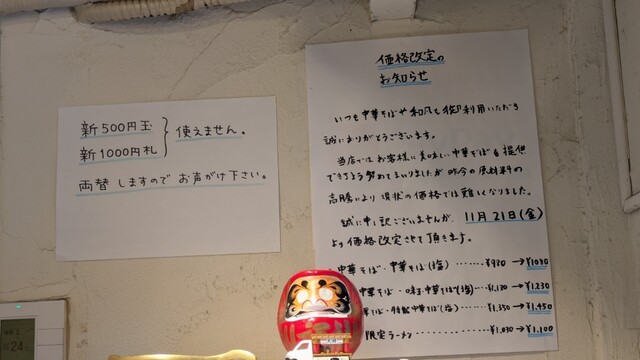 新500円玉
新1000円札
使えません。
両替しますので お声がけ下さい。
価格改定の
お知らせ
いつも中華そばや和凡を御利用いただき
誠にありがとうございます。
当店ではお客様に美味しい中華そばを提供
できるよう努めてまいりましたが昨今の原材料の
高騰により現状の価格では難しくなりました。
誠に申し訳ございませんが、11月21日(金)
より価格改定させて頂きます。
中華そば・中華そば(塩)‥‥‥¥930→¥1030
中華そば・味玉中華そば(塩)‥¥1,130→¥1,230
華そば・特製中華そば(塩)‥‥¥1,350→¥1,450
限定ラーメン‥‥‥‥‥‥¥1,030→¥1,100
24